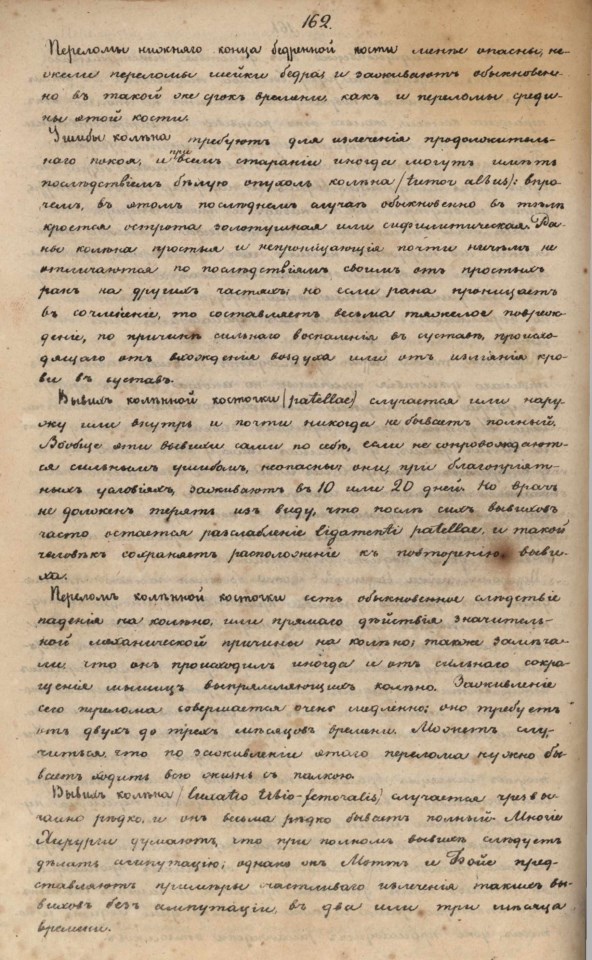 162.
Переломы нижняго конца бедренной кости менѣе опасны, не-
жели переломы шейки бедра; и заживаютъ обыкновен-
но въ такой же срокъ времени, какъ и переломы среди-
ны этой кости.
Ушибы колѣна требуютъ для излеченія продолжитель-
наго покоя, и при всемъ стараніи иногда могутъ имѣть
послѣдствіемъ бѣлую опухоль колѣна (tumor albus): впро-
чемъ, въ этомъ послѣднемъ случаѣ обыкновенно въ тѣлѣ
кроется острота золотушная или сифилитическая. Ра-
ны колѣна простыя и непроницающія почти ничѣмъ не
отличаются по послѣдствіямъ своимъ отъ простыхъ
ранъ на другихъ частяхъ; но если рана проницаетъ
въ сочлененіе, то составляетъ весьма тяжелое повреж-
деніе, по причинѣ сильнаго воспаленія въ суставѣ, происхо-
дящаго отъ вхожденія воздуха или отъ изліянія кро-
ви въ суставъ.
Вывихъ колѣнной косточки (patellae) случается или нару-
жу или внутрь и почти никогда не бываетъ полный.
Вообще эти вывихи сами по себѣ, если не сопровождают-
ся сильнымъ ушибомъ, неопасны: они, при благопріят-
ныхъ условіяхъ, заживаютъ въ 10 или 20 дней. Но врачъ
не долженъ терять изъ виду, что послѣ сихъ вывиховъ
часто остается разслабленіе ligamenti patellae, и такой
человѣкъ сохраняетъ расположеніе къ повторенію выви-
ха.
Переломъ колѣнной косточки есть обыкновенное слѣдствіе
паденія на колѣно, или прямаго дѣйствія значитель-
ной механической причины на колѣно; также замѣча-
ли, что онъ происходилъ иногда и отъ сильнаго сокра-
щенія мышицъ выпрямляющихъ колѣно. Заживленіе
сего перелома совершается очень медленно; оно требуетъ
отъ двухъ до трехъ мѣсяцовъ времени. Можетъ слу-
читься, что по заживленіе этаго перелома нужно бы-
ваетъ ходить всю жизнь съ палкою.
Вывихъ колѣна (luxatio tibio-femoralis) случается чрезвы-
чайно рѣдко, и онъ весьма рѣдко бываетъ полный. Многіе
Хирурги думаютъ, что при полномъ вывихѣ слѣдуетъ
дѣлать ампутацію; однако жъ Моттъ и Бойе пред-
ставляютъ примѣры счастливаго излеченія такихъ вы-
виховъ безъ ампутаціи, въ два или три мѣсяца
времени.